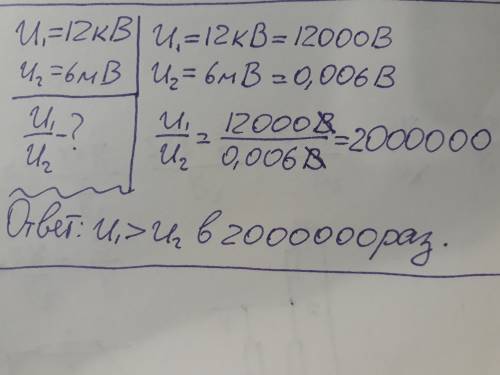 U₁=12кВ
U₂=6мВ
U₁/U₂-?
U₁=12кВ=12000В
U₂=6мВ=0,006В
U₁/U₂=12000В/0,006В=2000000
Ответ: U₁>U₂ в 2000000раз.